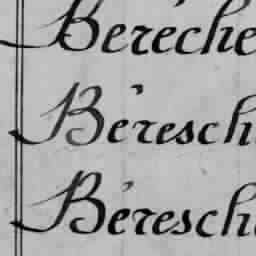 Béréche
Béresch
Béresch